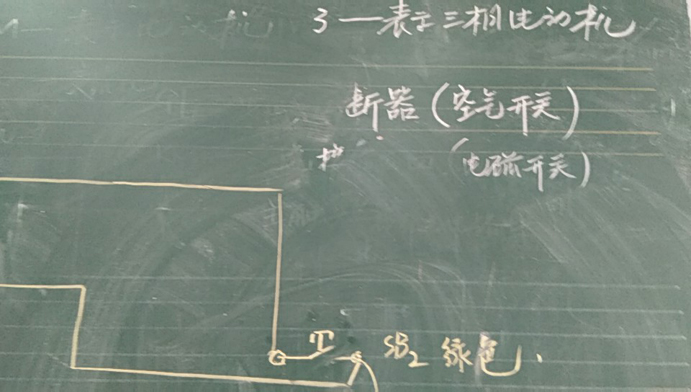 3—表示三相电动机
断器(空气开关)
(电磁开关)
SB₂ 绿色.